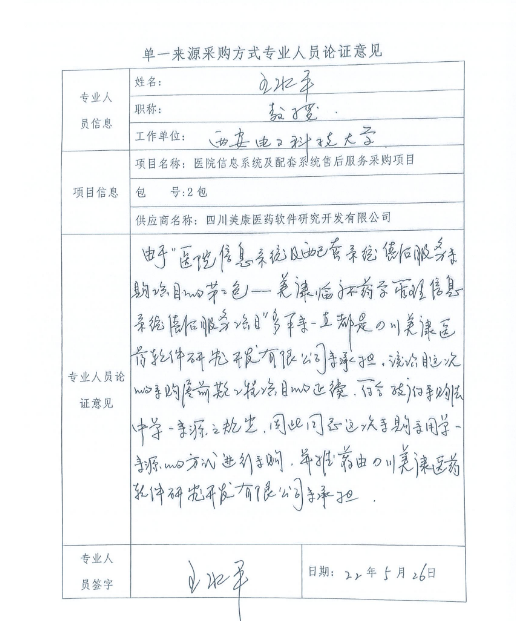 单一来源采购方式专业人员论证意见
专业人员信息
姓名：
职称：教授.
工作单位：西安电子科技大学
项目信息
项目名称：医院信息系统及配套系统售后服务采购项目
包 号:2包
供应商名称：四川美康医药软件研究开发有限公司
专业人员论证意见
由于"医院信息系统及配套系统售后服务采
购项目的第二包——美康临床药学管理信息
系统售后服务项目"多年来一直都是四川美康医
药软件研究开发有限公司来承担.该项目这次
的采购属前期工程项目的延续.符合政府采购法
中单一来源之规定.因此同意这次采购采用单一
来源的方式进行采购.并推荐由四川美康医药
软件研究开发有限公司来承担.
专业人员签字
日期：22年5月26日